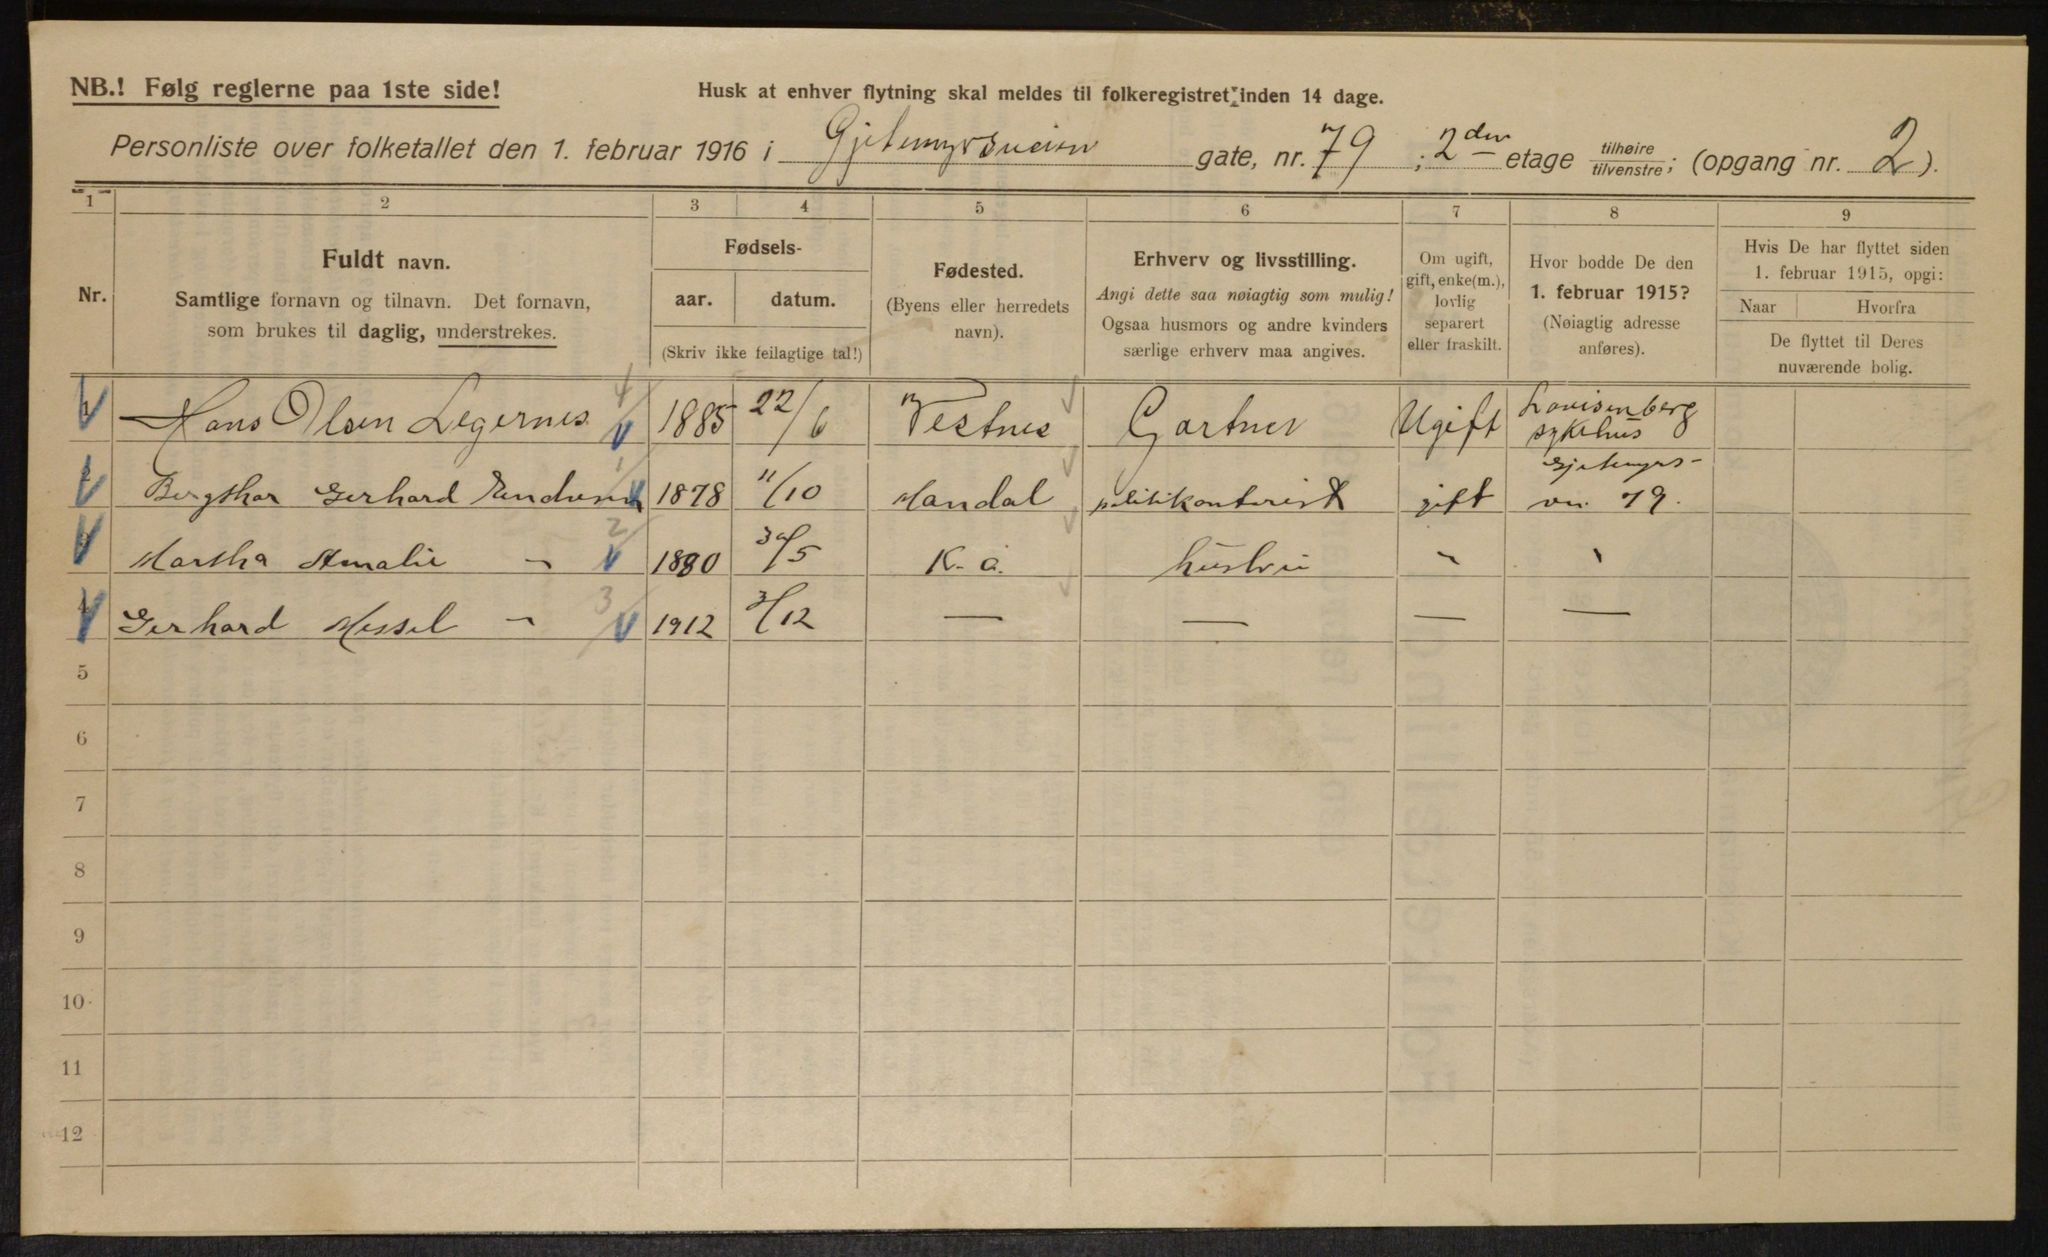 NB.! Følg reglerne paa 1ste side!
Husk at enhver flytning skal meldes til folkeregistret inden 14 dage.
Personliste over folketallet den 1. februar 1916 i Gjetemyrsveien gate, nr. 79; 2den etage tilhøire/tilvenstre; (opgang nr. 2).
1 2 3 4 5 6 7 8 9
Nr.
Fuldt navn.
Samtlige fornavn og tilnavn. Det fornavn,
som brukes til daglig, understrekes.
Fødsels-
aar. datum.
(Skriv ikke feilagtige tal!)
Fødested.
(Byens eller herredets
navn).
Erhverv og livsstilling.
Angi dette saa nøiagtig som mulig!
Ogsaa husmors og andre kvinders
særlige erhverv maa angives.
Om ugift,
gift, enke(m.),
lovlig
separert
eller fraskilt.
Hvor bodde De den
1. februar 1915?
(Nøiagtig adresse
anføres).
Hvis De har flyttet siden
1. februar 1915, opgi:
Naar Hvorfra
De flyttet til Deres
nuværende bolig.
1 Hans Olsen Legernes 4 1885 22/6 Vestnes Gartner Ugift Lovisenberg sykehus
2 Gerhard 1 1878 11/10 Mandal politikontorist gift Gjetemyrs- vn. 79.
3 Martha Amalie " 2 1880 30/5 K. a. hustru " "
4 Gerhard Messel " 3 1912 3/12 — — — —
5
6
7
8
9
10
11
12